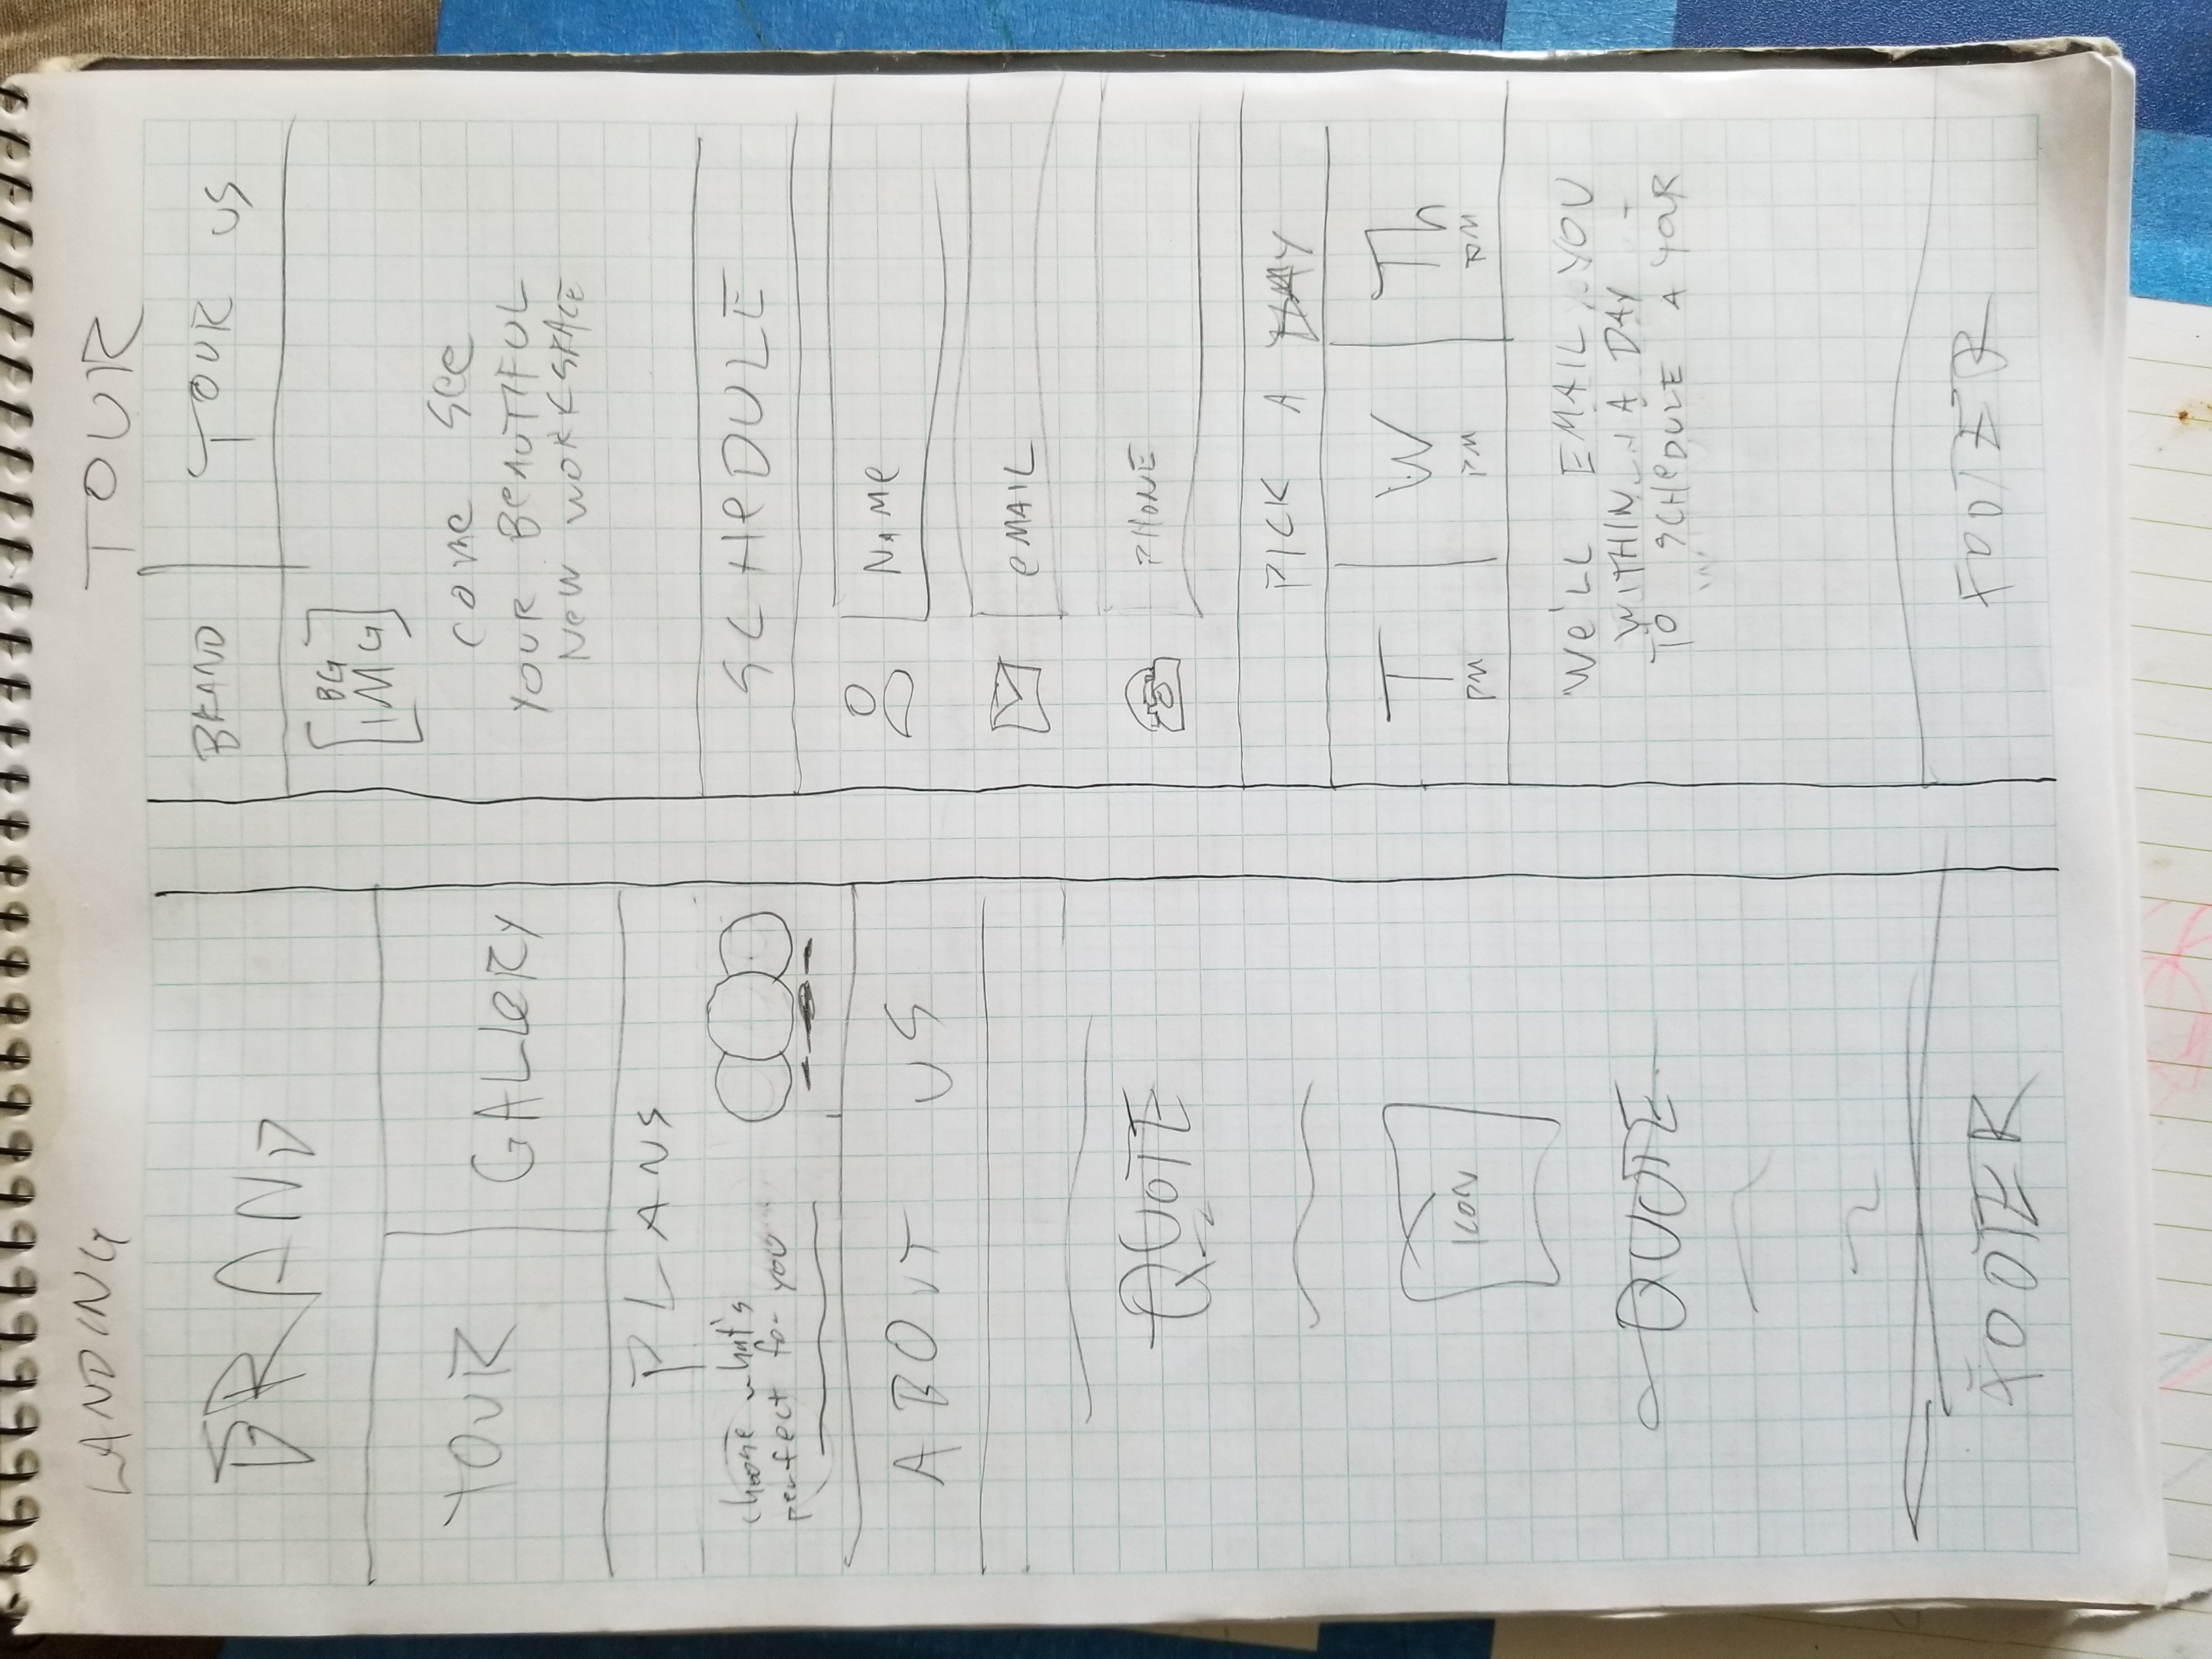 LANDING
BRAND
TOUR GALLERY
PLANS
choose what's
perfect for you
ABOUT US
QUOTE
ICON
QUOTE
FOOTER
TOUR
BRAND TOUR US
[BG
IMG]
come see
YOUR BEAUTIFUL
NEW WORKSPACE
SCHEDULE
NAMe
eMAIL
PHONE
PICK A DAY
T W Th
PM PM PM
We'LL EMAIL YOU
WITHIN A DAY
TO SCHeDULE A YOUR
FOOTER